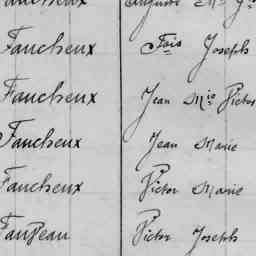 Faucheux Fois Joseph
Faucheux Jean Mie Victor
Faucheux Jean Marie
Faucheux Victor Marie
Victor Joseph